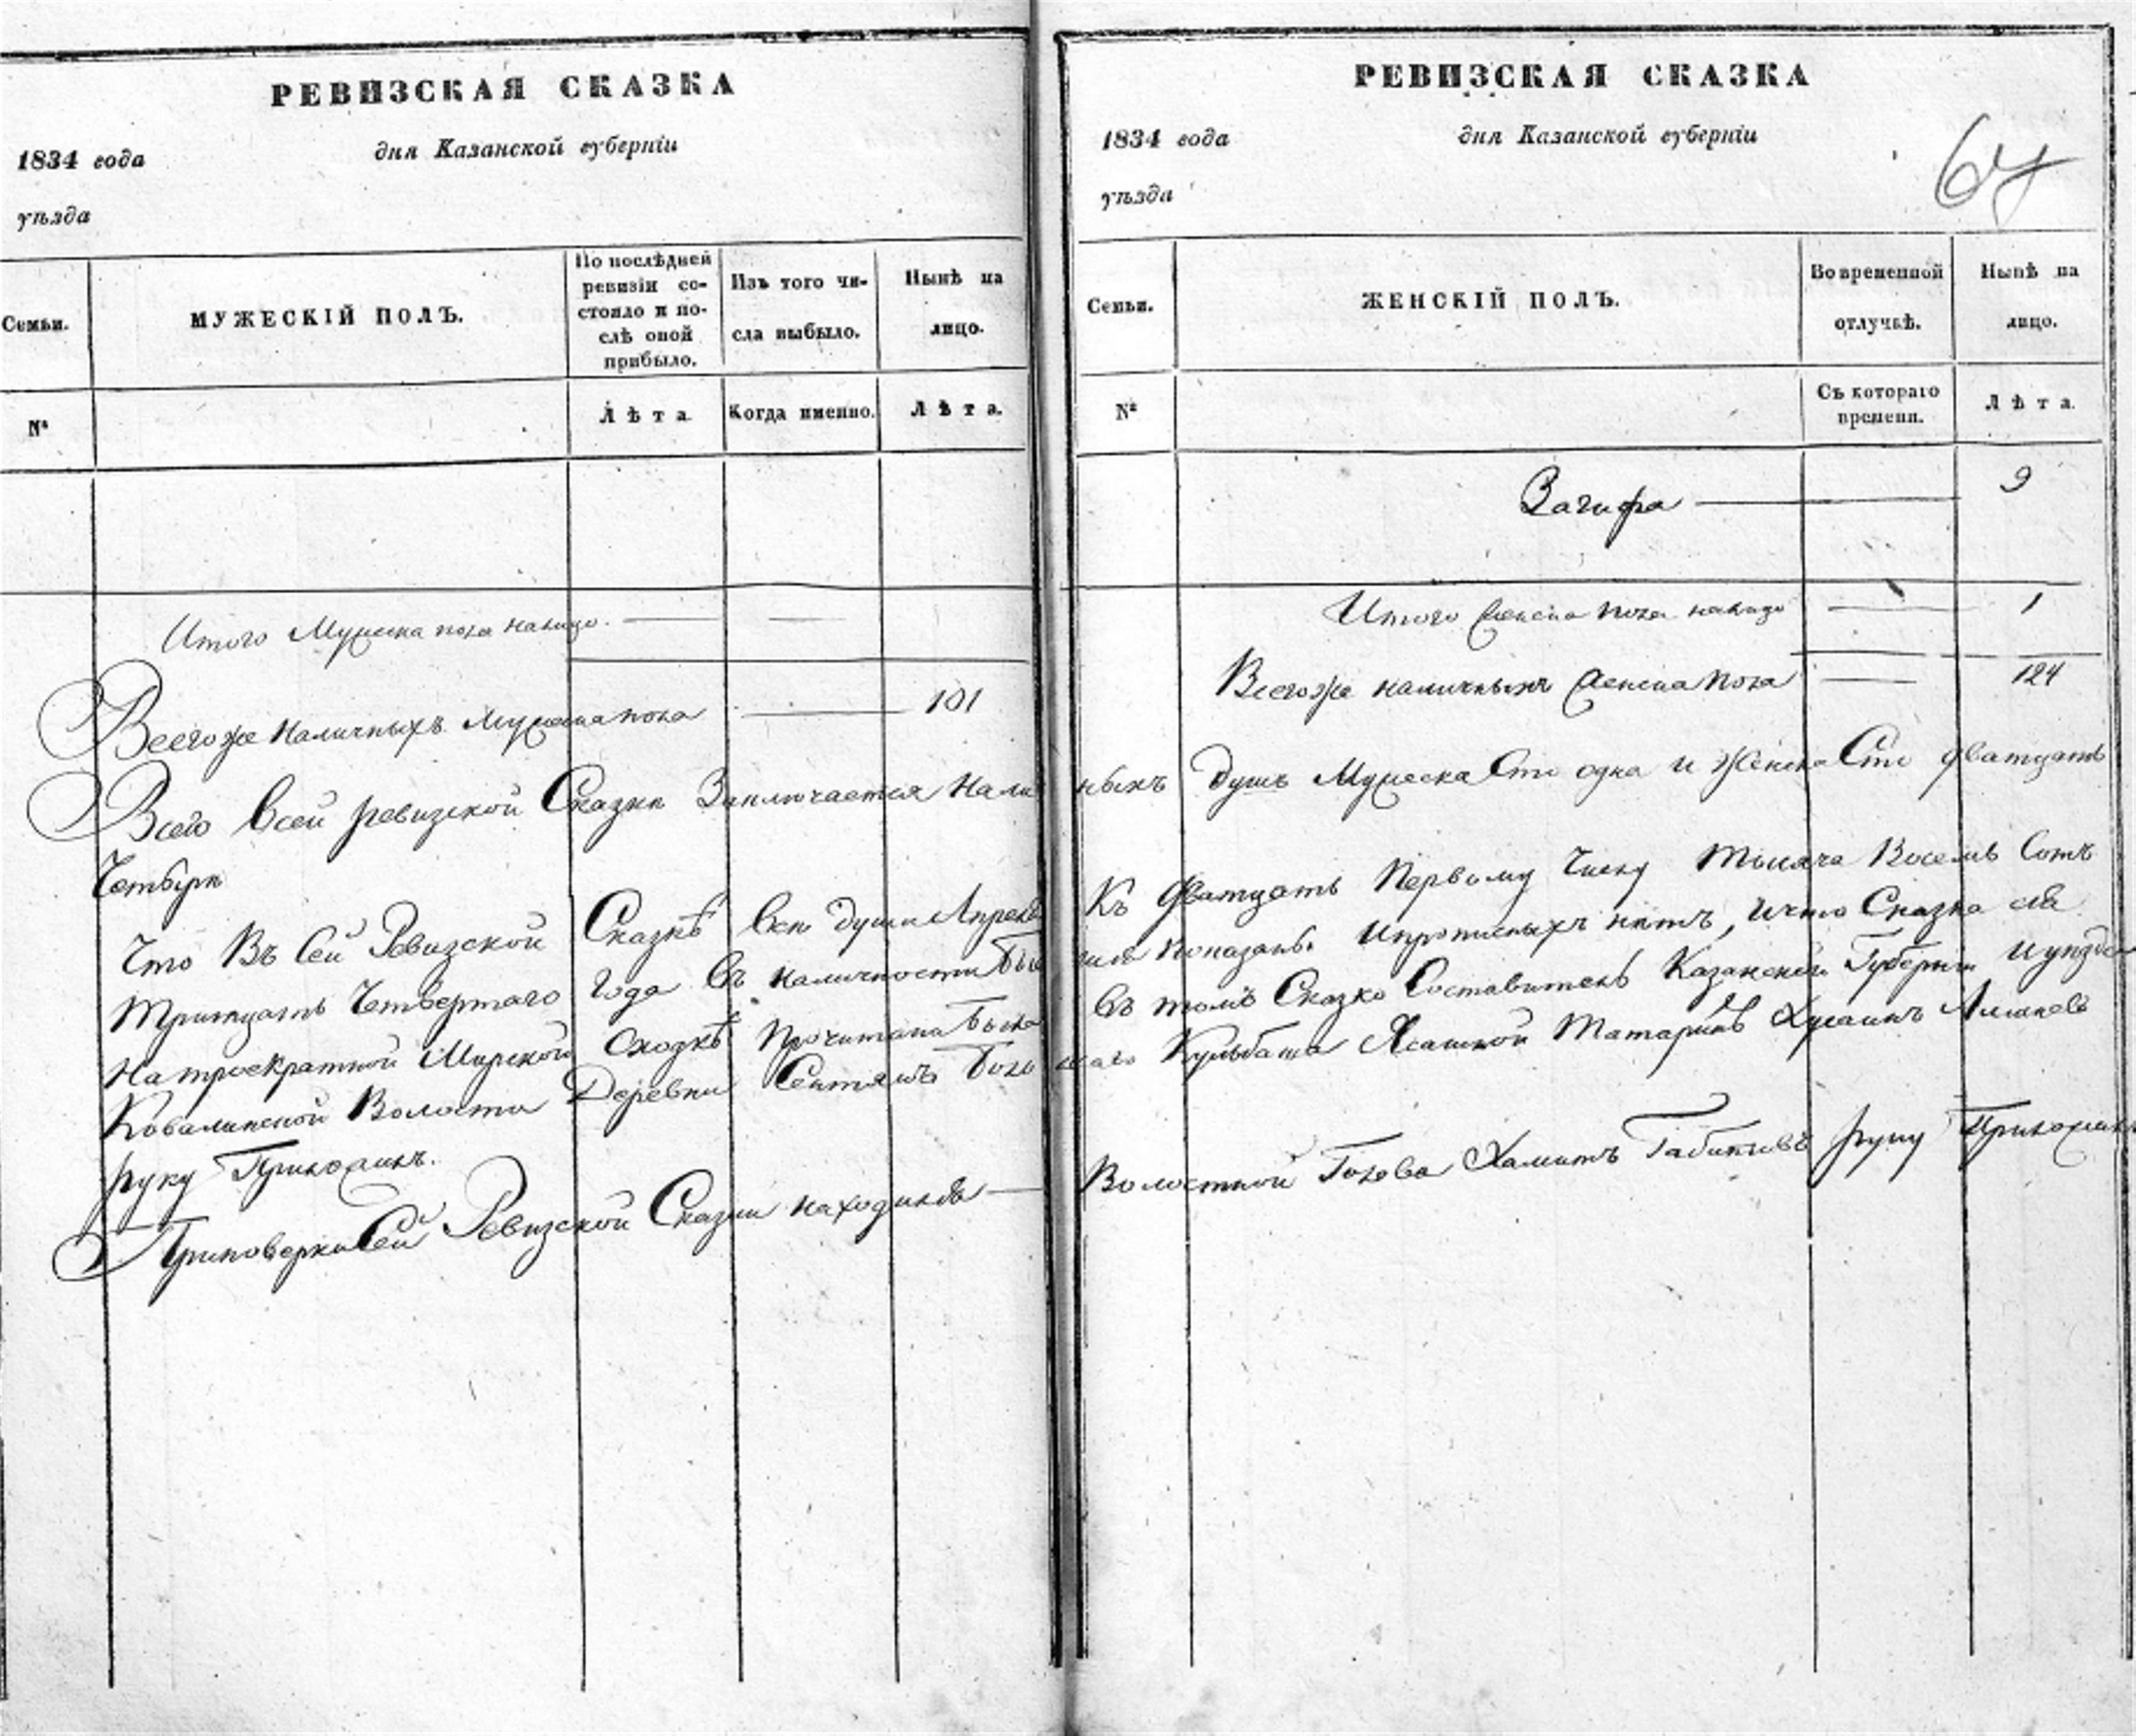 РЕВИЗСКАЯ СКАЗКА
1834 года
дня Казанской губерніи
уѣзда
Семьи.
МУЖЕСКІЙ ПОЛЪ.
По послѣдней
ревизіи со-
стояло и по-
слѣ оной
прибыло.
Изъ того чи-
сла выбыло.
Нынѣ на
лицо.
№
Лѣта
Когда именно.
Лѣта.
Итого Мужеска пола налицо.
Всегоже наличныхъ Мужеска пола 101
РЕВИЗСКАЯ СКАЗКА
1834 года
дня Казанской губерніи
67
уѣзда
Семьи.
ЖЕНСКІЙ ПОЛЪ.
Во временной
отлучкѣ.
Нынѣ на
лицо.
№
Съ котораго
времени.
Лѣта.
Загифа 9
Итого Женска пола налицо 1
Всегоже наличныхъ Женска пола 124
Всего всей ревизской Сказкѣ Заключается Наличныхъ душъ Мужеска Сто одна и Женска Сто дватцать
Четыре
Что Въ Сей Ревизской Сказкѣ всѣ души Апреля Къ дватцать Первому Числу Тысяча Восемь Сотъ
Тритцать Четвертаго Года въ наличности показаны ипрописныхъ нѣтъ, ичто Сказка сія
На троекратной Мирской сходкѣ Прочитана была въ томъ Сказко Составитель Казанской Губерніи Иуѣзда
Ковалинской Волости Деревни Кульбаша Ясашной Татаринъ Хусаинъ
руку Приложилъ.
Приповерки Сей Ревизской Сказки находился Волостной Голова Хамитъ Габитовъ руку Приложилъ